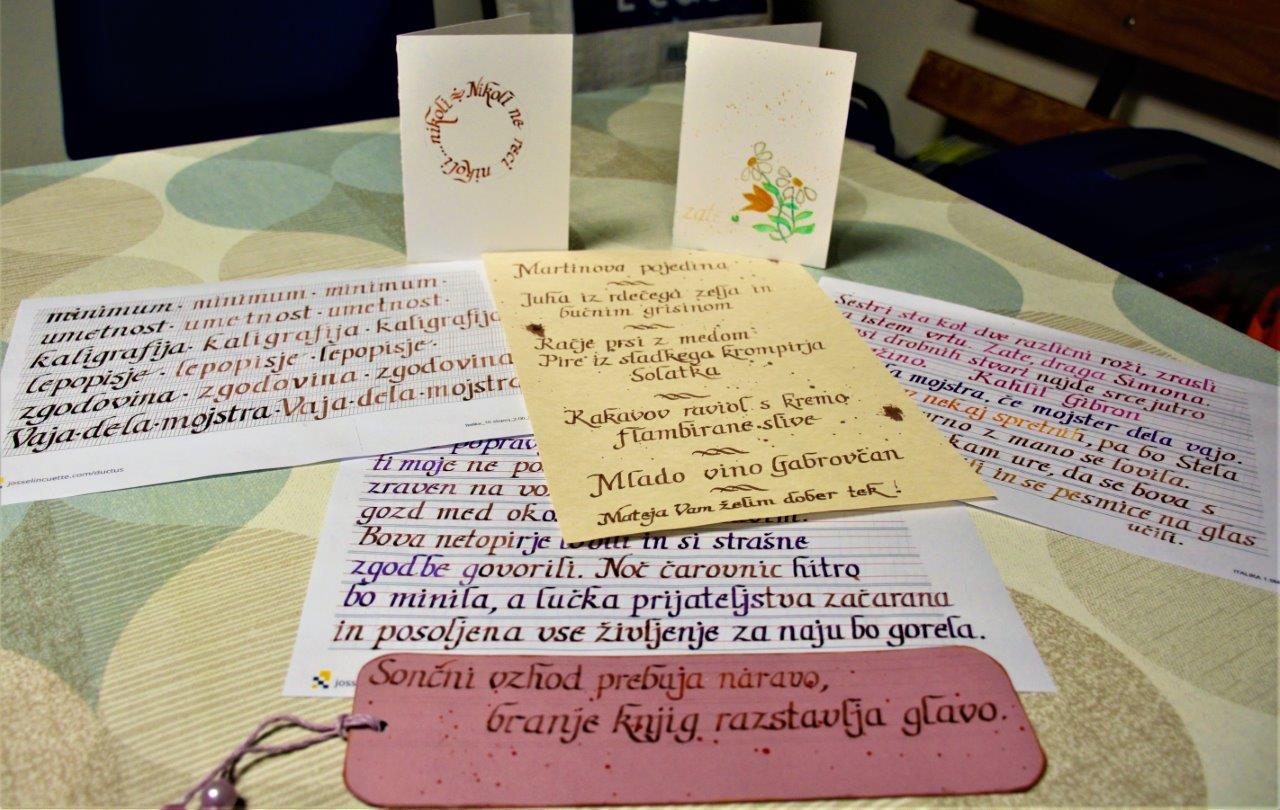 Nikoli ne reci nikoli...nikoli
zate
minimum · minimum · minimum ·
umetnost · umetnost · umetnost ·
kaligrafija · kaligrafija
lepopisje · lepopisje · lepopisje ·
zgodovina · zgodovina · zgodovina
Vaja·dela·mojstra·Vaja·dela·mojstra
josselincuette.com/ductus
Martinova pojedina
Juha iz rdečega zelja in
bučnim grisinom
Račje prsi z medom
Pire iz sladkega krompirja
Solatka
Kakavov raviol s kremo
flambirane slive
Mlado vino Gabrovčan
Mateja Vam želim dober tek!
Sestri sta kot dve različni roži, zrasli
istem vrtu. Zate, draga Simona.
drobnih stvari najde srce jutro
Kahlil Gibron
mojstra, če mojster dela vajo.
nekaj spretnih, pa bo Stela
z mano se lovila.
ure, da se bova s
in se pesmice na glas
učili.
ITALIKA
poprav
ti moje ne
zraven na
gozd med
Bova netopirje lovili in si strašne
zgodbe govorili. Noč čarovnic hitro
bo minila, a lučka prijateljstva začarana
in posoljena vse življenje za naju bo gorela.
Sončni vzhod prebuja naravo,
branje knjig razstavlja glavo.